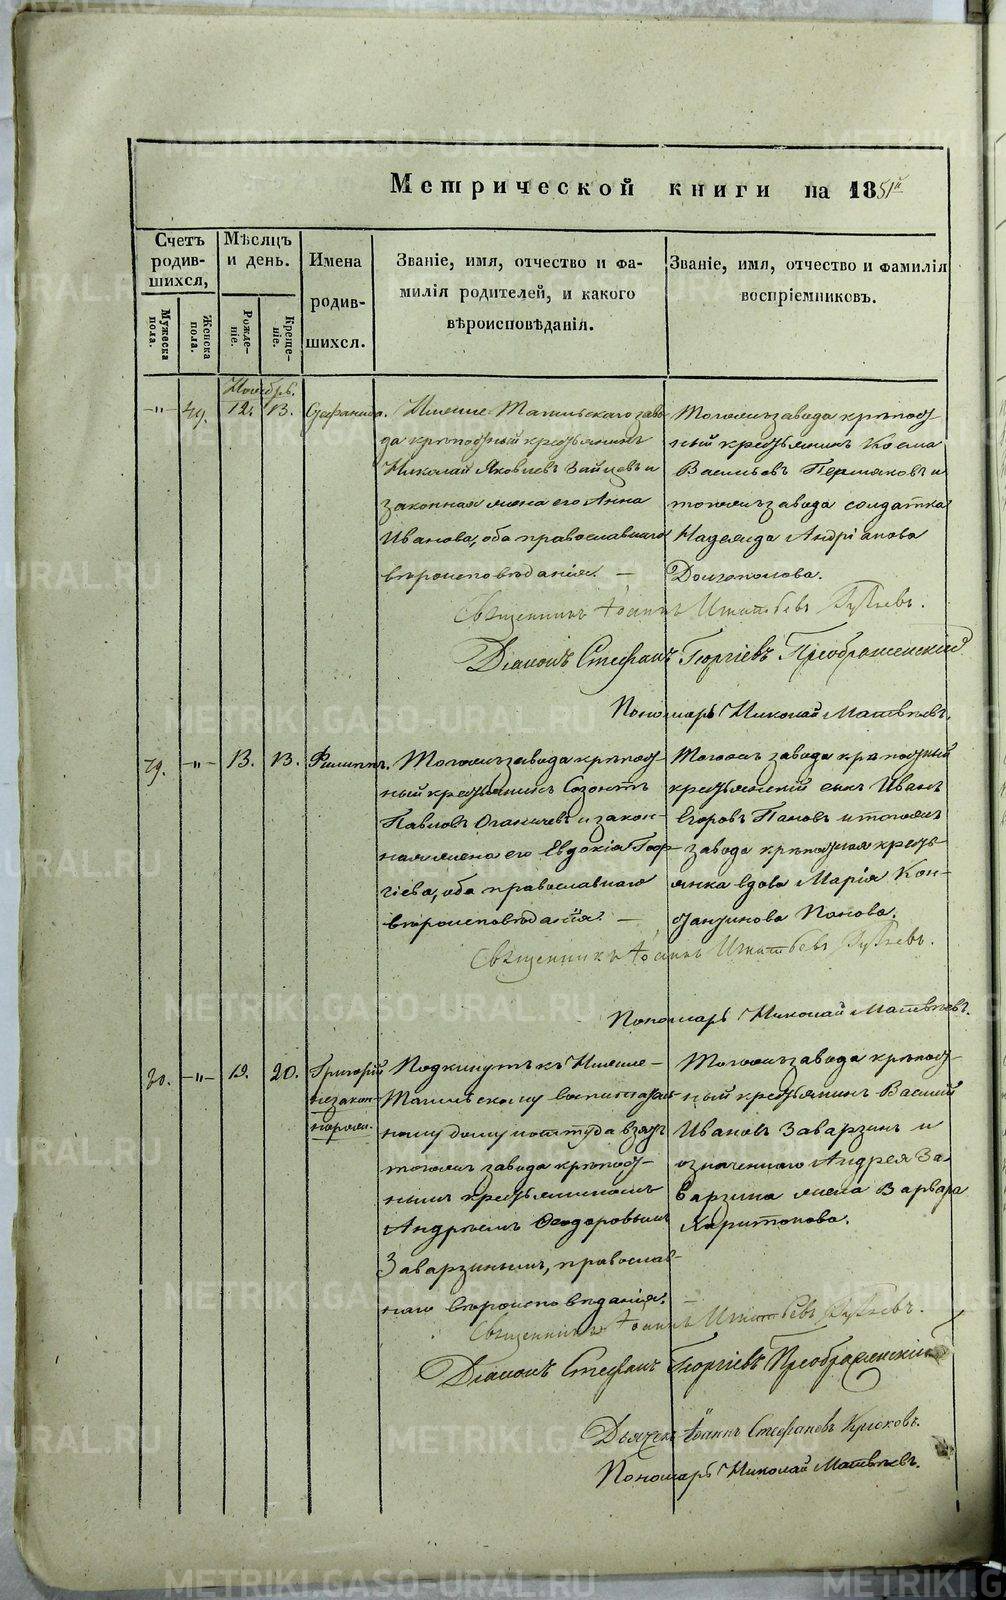 METRIKI.GASO-URAL.RU
Метрической книги на 1851й
Счетъ родившихся,
Мужеска пола.
Женска пола.
Мѣсяцъ и день.
Рожденіе.
Крещеніе.
Имена родившихся.
Званіе, имя, отчество и фамилія родителей, и какого вѣроисповѣданія.
Званіе, имя, отчество и фамилія воспріемниковъ.
Ноябрь.
-"- 29. 12. 13.
Стефанида.
Нижне Тагильскаго заво-
да крѣпостный крестьянинъ
Николай Яковлевъ Зайцевъ и
законная жена его Анна
Иванова, оба православнаго
вѣроисповѣданія. —
Тогожъ завода крѣпост-
ный крестьянинъ Косма
Васильевъ Пермяковъ и
тогожъ завода солдатка
Надежда Андріанова
Долгополова.
Священникъ Іоаннъ
Діаконъ Стефанъ Георгіевъ Преображенскій
Пономарь Николай Матвѣевъ.
29. -"- 13. 13.
Филиппъ.
Тогожъ завода крѣпост-
ный крестьянинъ Созонтъ
Павловъ и закон-
ная жена его Евдокія Геор-
гіева, оба православнаго
вѣроисповѣданія. —
Тогожъ завода крѣпостный
крестьянскій сынъ Иванъ
Егоровъ Пановъ и тогожъ
завода крѣпостная кресть-
янка вдова Марія Кон-
стантинова Панова.
Священникъ Іоаннъ
Пономарь Николай Матвѣевъ.
30. -"- 19. 20.
Григорій
незакон-
норожд.
Подкинутъ къ Нижне-
Тагильскому воспитатель-
ному дому и оттуда взятъ
тогожъ завода крѣпост-
нымъ крестьяниномъ
Андреемъ Ѳеодоровымъ
Заварзинымъ, православ-
наго вѣроисповѣданія.
Тогожъ завода крѣпост-
ный крестьянинъ Василій
Ивановъ Заварзинъ и
означеннаго Андрея За-
варзина жена Варвара
Харитонова.
Священникъ Іоаннъ
Діаконъ Стефанъ Георгіевъ Преображенскій
Дьячекъ Іоаннъ Стефановъ
Пономарь Николай Матвѣевъ.